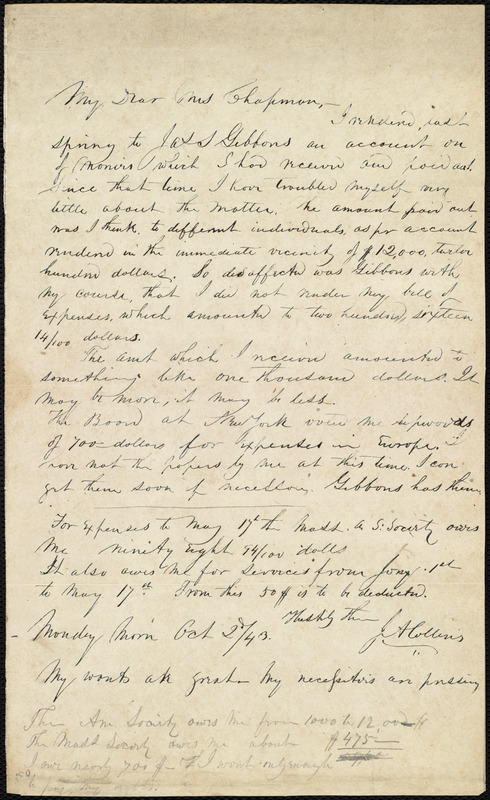 My Dear Mrs Chapman,—
I rendered, last
spring to Jas S Gibbons an account on
of monies which I had received and paid out.
Since that time I have troubled myself very
little about the matter. The amount paid out
was I think, to different individuals, as per account
rendered in the immediate vicinity of $12,000, twelve
hundred dollars. So disaffected was Gibbons with
my course, that I did not render my bill of
expenses, which amounted to two hundred sixteen
14/100 dollars.
The amt which I received amounted to
something like one thousand dollars. It
may be more, it may be less.
The Board at New York owed me upwards
of 700 dollars for expenses in Europe. I
have not the papers by me at this time. I can
get them soon if necessary. Gibbons has them.
For Expenses to May 17th the Mass. A. S. Society owes
me ninety eight 94/100 dolls
It also owes me for services from Jany. 1st
to May 17th From this 50 $ is to be deducted.
Hastily thine
Monday Morn Oct 2d/43. J A Collins
My wants are great— My necessities are pressing
The Am Society owes me from 1000 to 12,00 $
The Mass Society owes me about $475—
I owe nearly 700 $— I want only enough
to pay my debts.